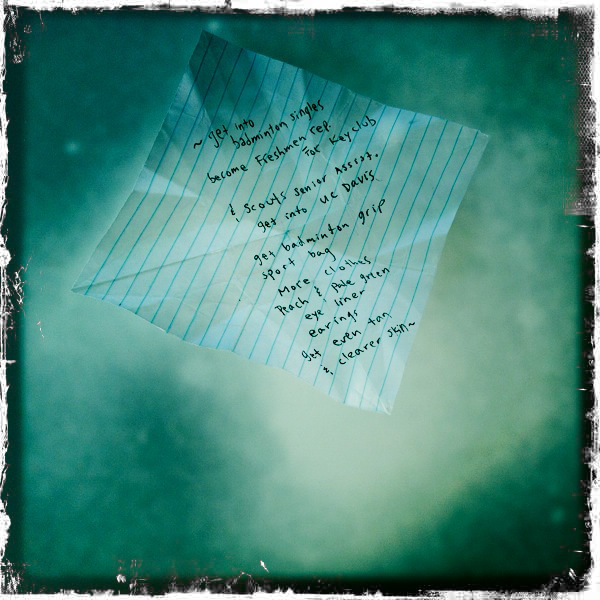 ~ get into
badminton singles
become Freshmen rep.
For Key club
& Scouts Senior Assist.
get into UC Davis
get badminton grip
sport bag
More clothes
Peach & Pale green
eye liner
earings
get even tan
& clearer skin~